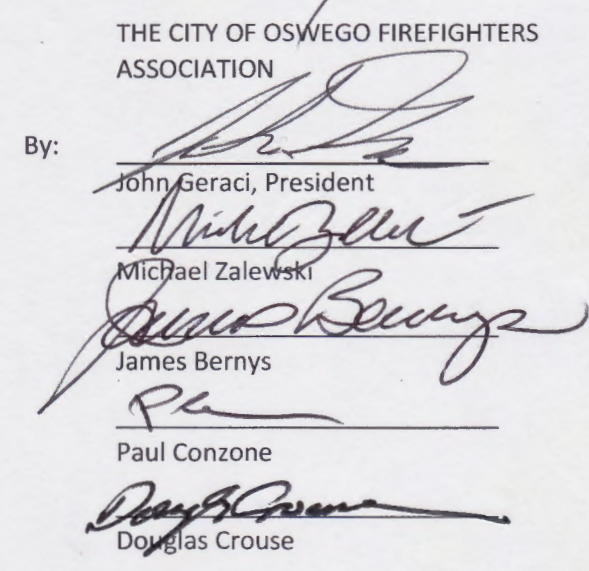 THE CITY OF OSWEGO FIREFIGHTERS
ASSOCIATION
By:
John Geraci, President
Michael Zalewski
James Bernys
James Bernys
Paul Conzone
Douglas Crouse